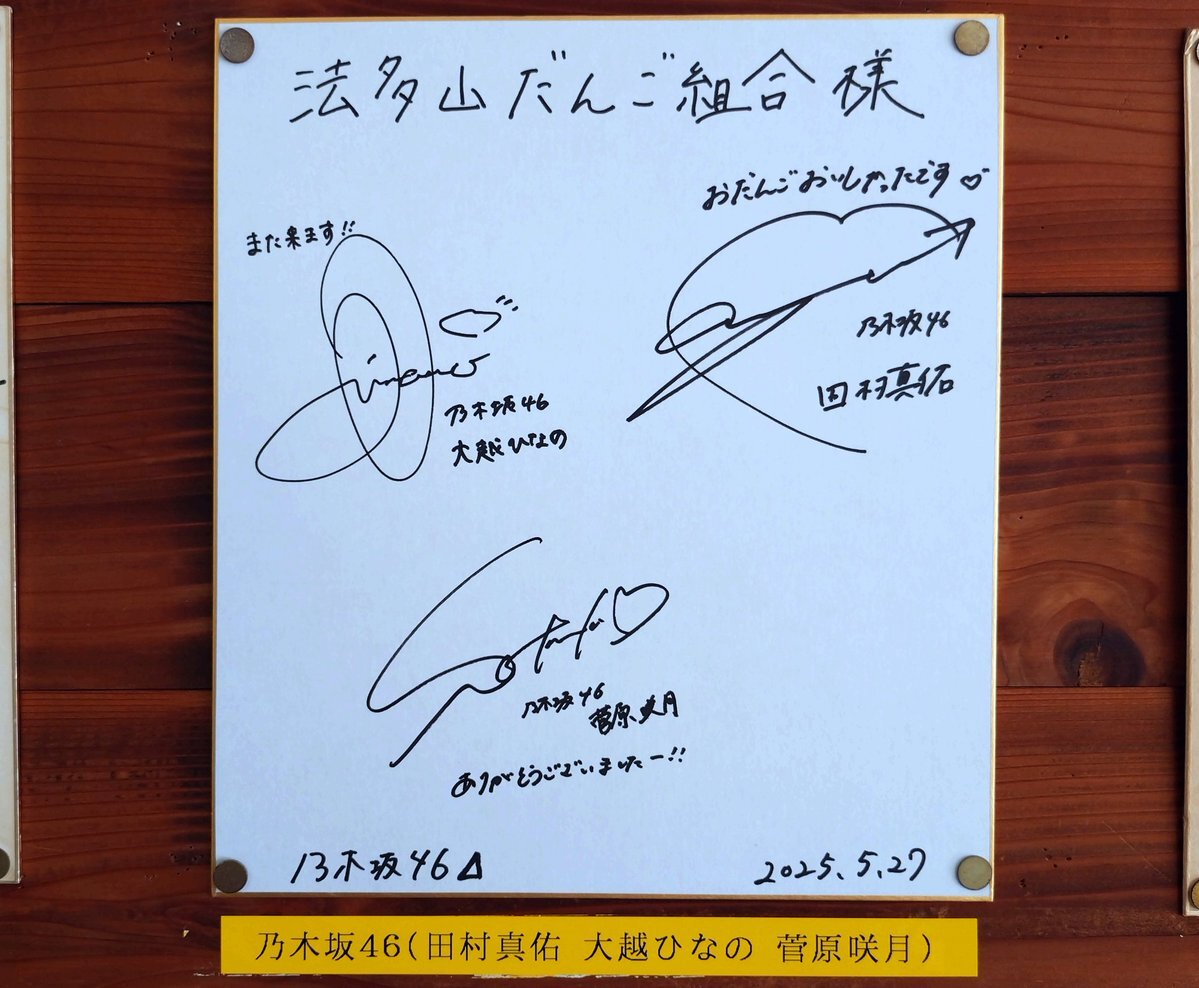 法多山だんご組合様
おだんごおいしかったです♡
乃木坂46
田村真佑
また来ます!!
Hinano
乃木坂46
大越ひなの
乃木坂46
菅原咲月
ありがとうございましたー!!
乃木坂46
2025.5.27
乃木坂46(田村真佑 大越ひなの 菅原咲月)